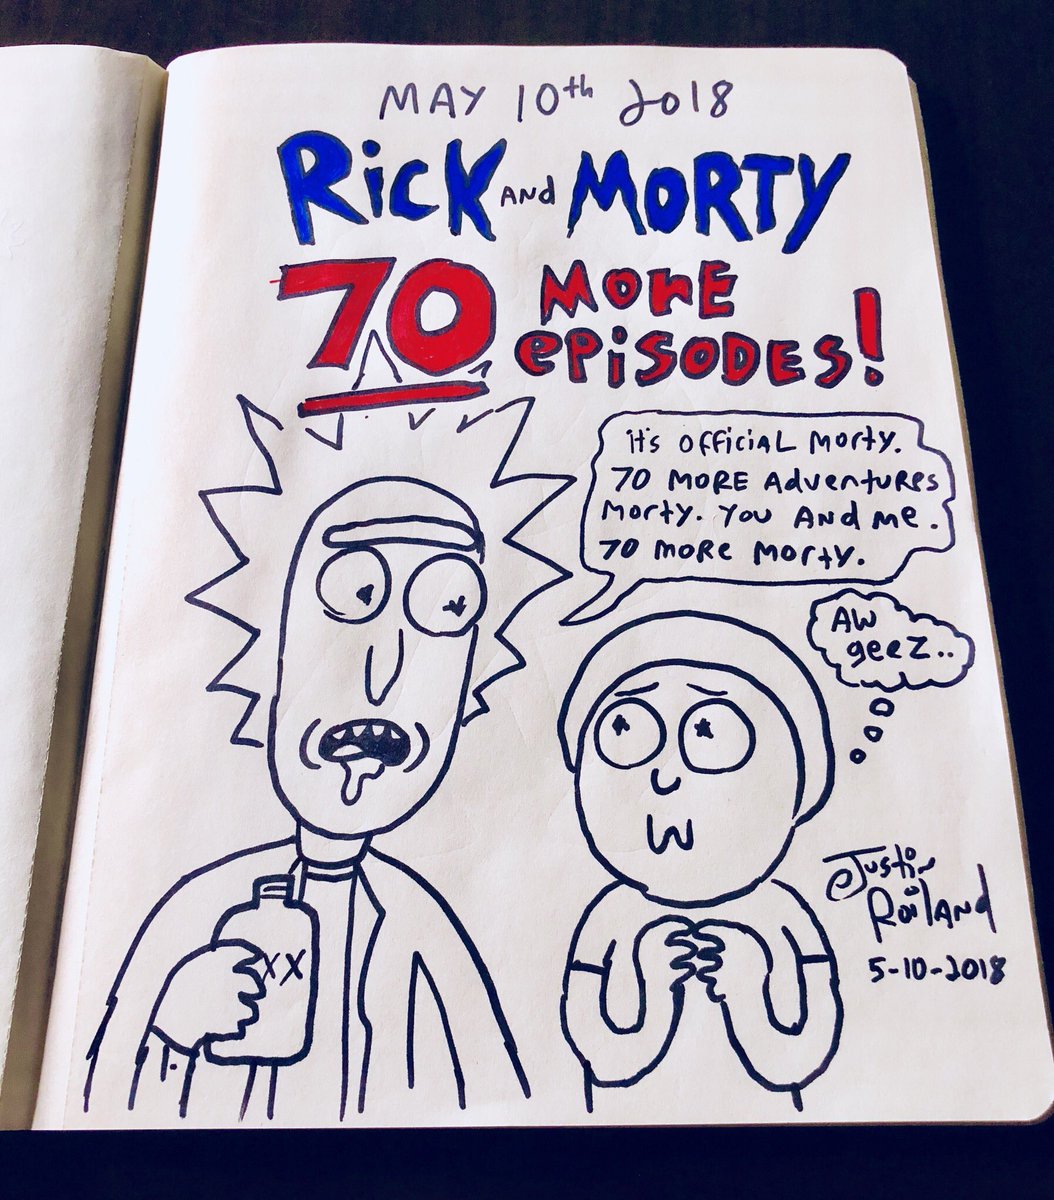 MAY 10th 2018
RicK AND MORTY
70 MORE
episodes!
it's official Morty.
70 MORE Adventures
Morty. You And me.
70 more Morty.
AW
geez..
XX
Justin
Roiland
5-10-2018